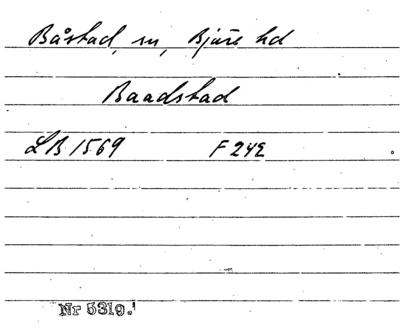 Båstad, sn, Bjäre hd
Baadstad
LB 1569 F 242
Nr 5319.